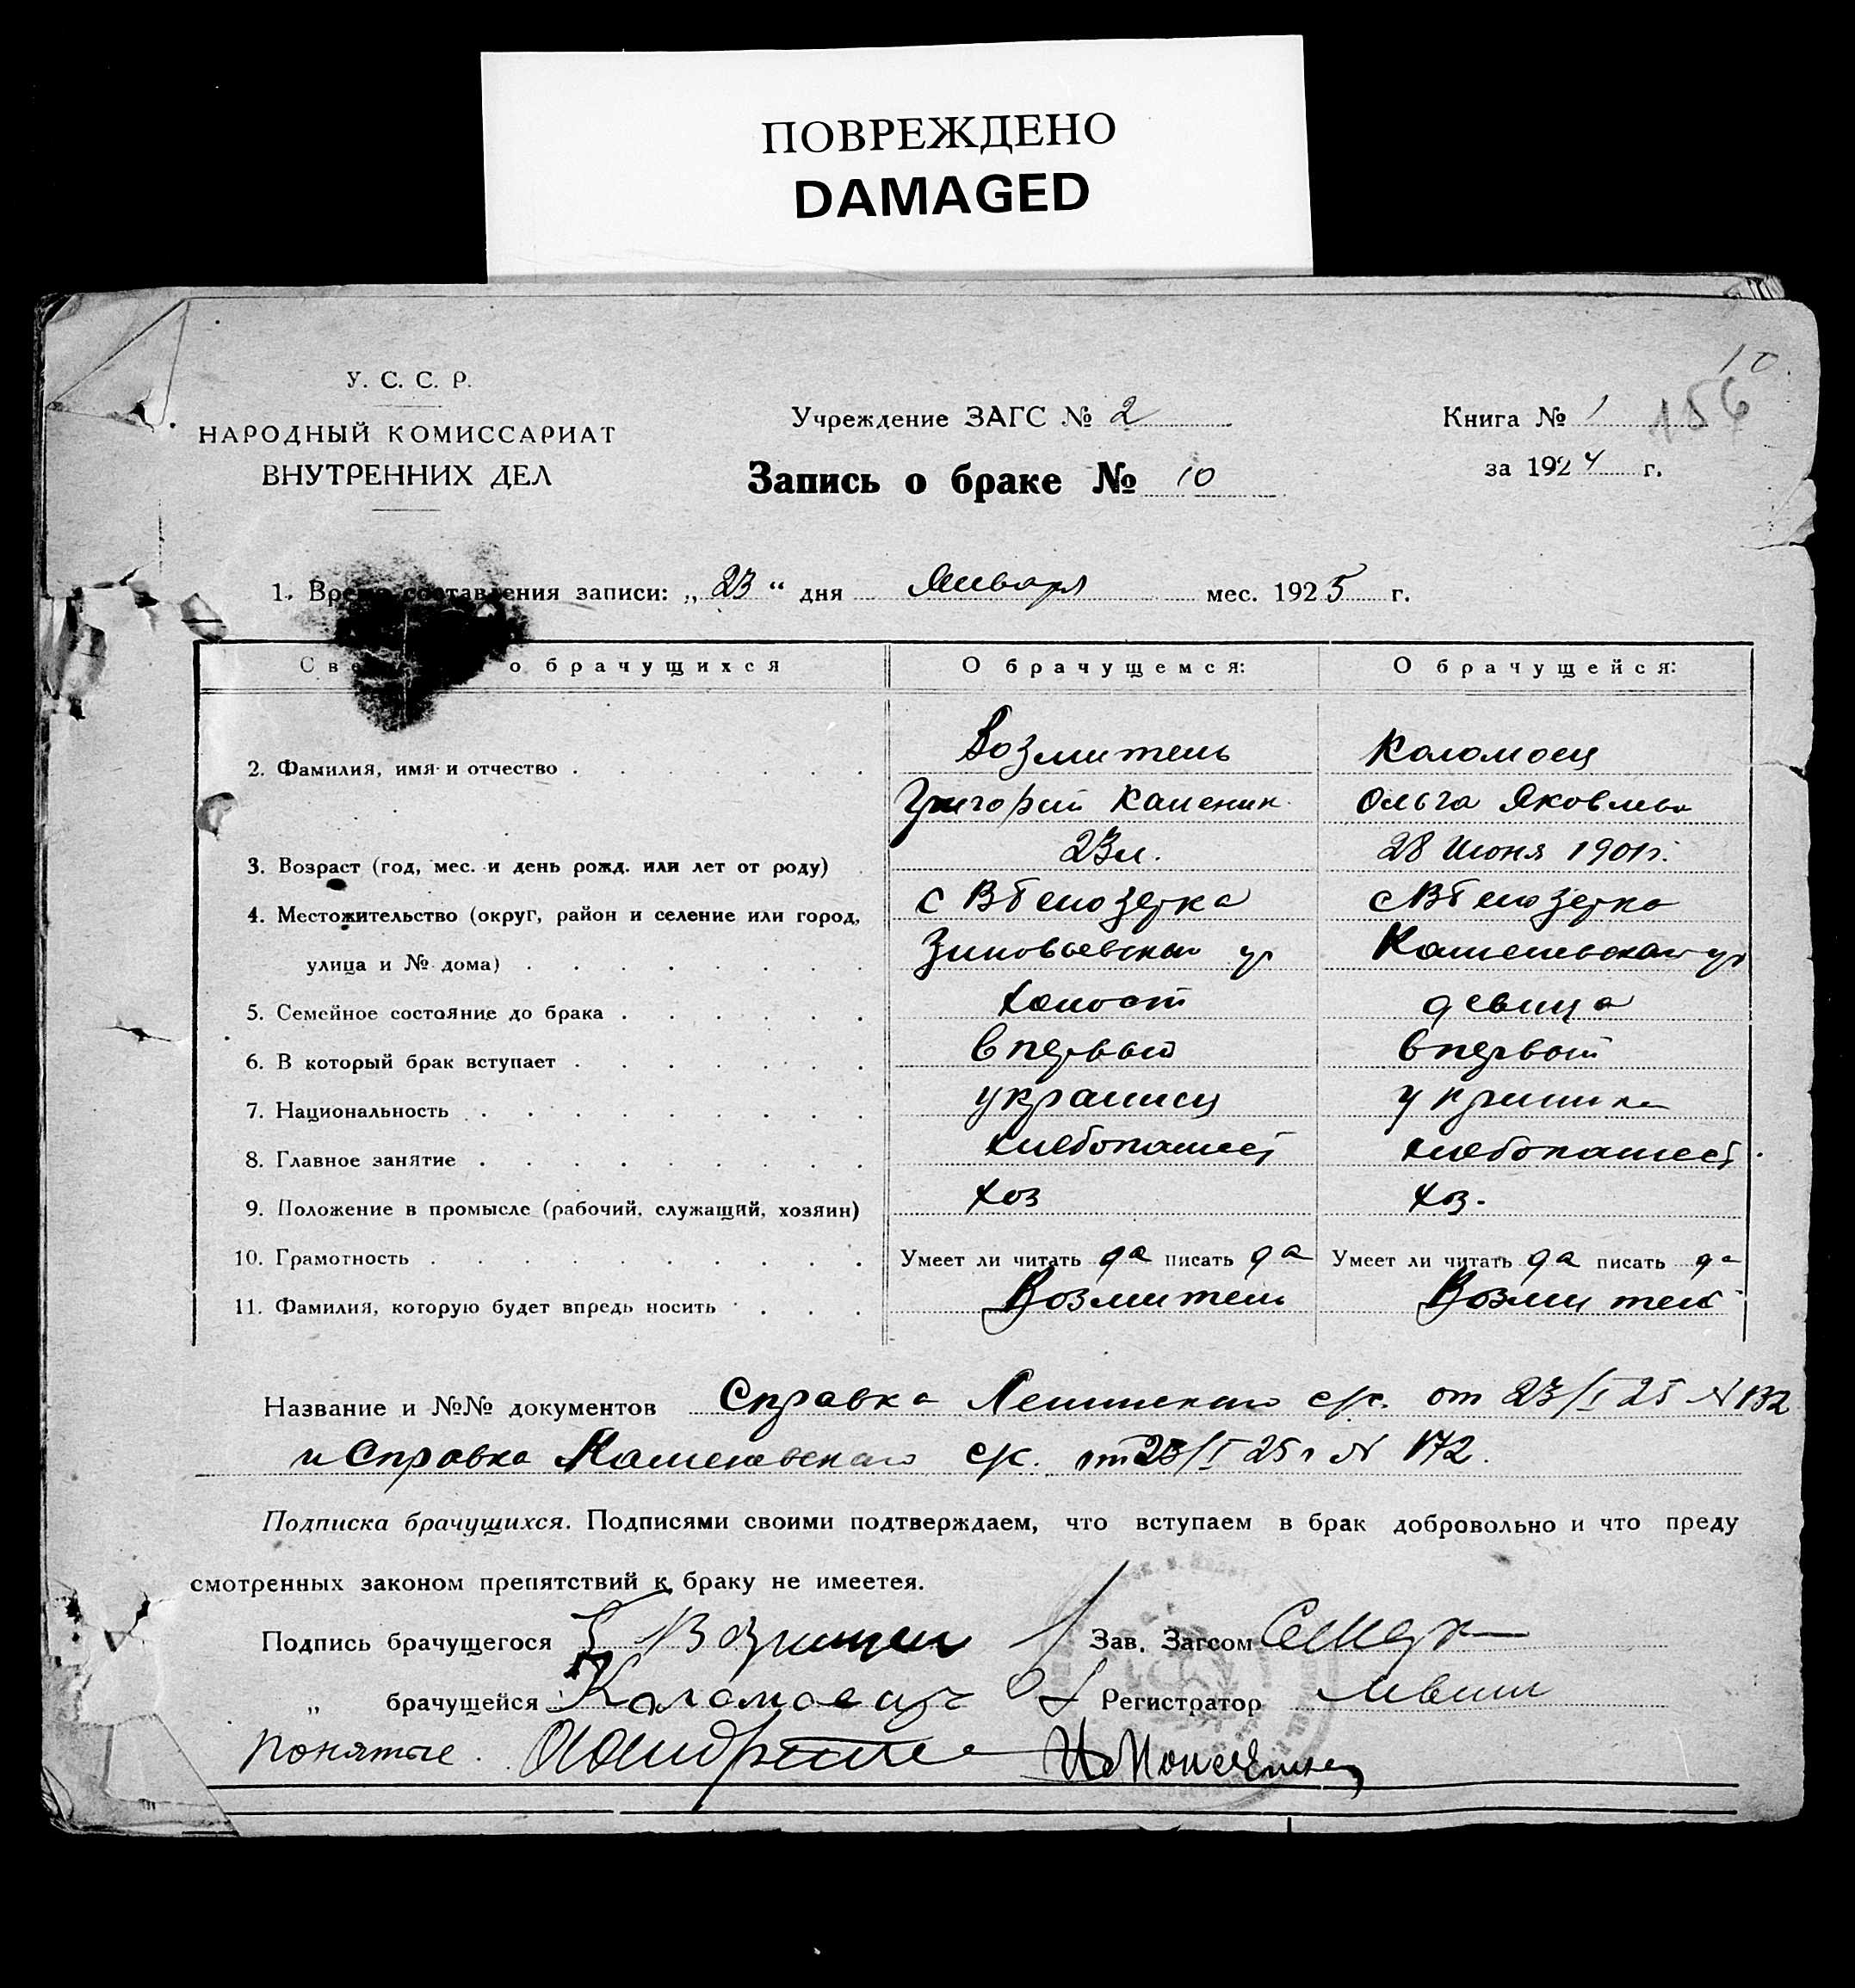 ПОВРЕЖДЕНО
DAMAGED
10
У. С. С. Р.
НАРОДНЫЙ КОМИССАРИАТ
ВНУТРЕННИХ ДЕЛ
Учреждение ЗАГС № 2
Запись о браке № 10
Книга № 1 156
за 1924 г.
1. Время составления записи: „ 23 “ дня Января мес. 1925 г.
Све о брачущихся О брачущемся: О брачущейся:
2. Фамилия, имя и отчество Возмитель Коломоец
Григорий Ольга Яковлев
3. Возраст (год, мес. и день рожд. или лет от роду) 23 л. 28 Июня 1901 г.
4. Местожительство (округ, район и селение или город, с В Белозерка с В Белозерка
улица и № дома) Зиновьевская ул
5. Семейное состояние до брака холост девица
6. В который брак вступает в первый в первый
7. Национальность украинец украинка
8. Главное занятие хлебопашест хлебопашест
9. Положение в промысле (рабочий, служащий, хозяин) хоз хоз.
10. Грамотность Умеет ли читать да писать да Умеет ли читать да писать да
11. Фамилия, которую будет впредь носить Возмитель Возмитель
Название и №№ документов Справка Ленинского с/с. от 23/I 25 N 132
и Справка с/с. от 23/I 25 г N 172.
Подписка брачущихся. Подписями своими подтверждаем, что вступаем в брак добровольно и что преду
смотренных законом препятствий к браку не имеется.
Подпись брачущегося Зав. Загсом
„ брачущейся Коломоец Регистратор
Понятые.